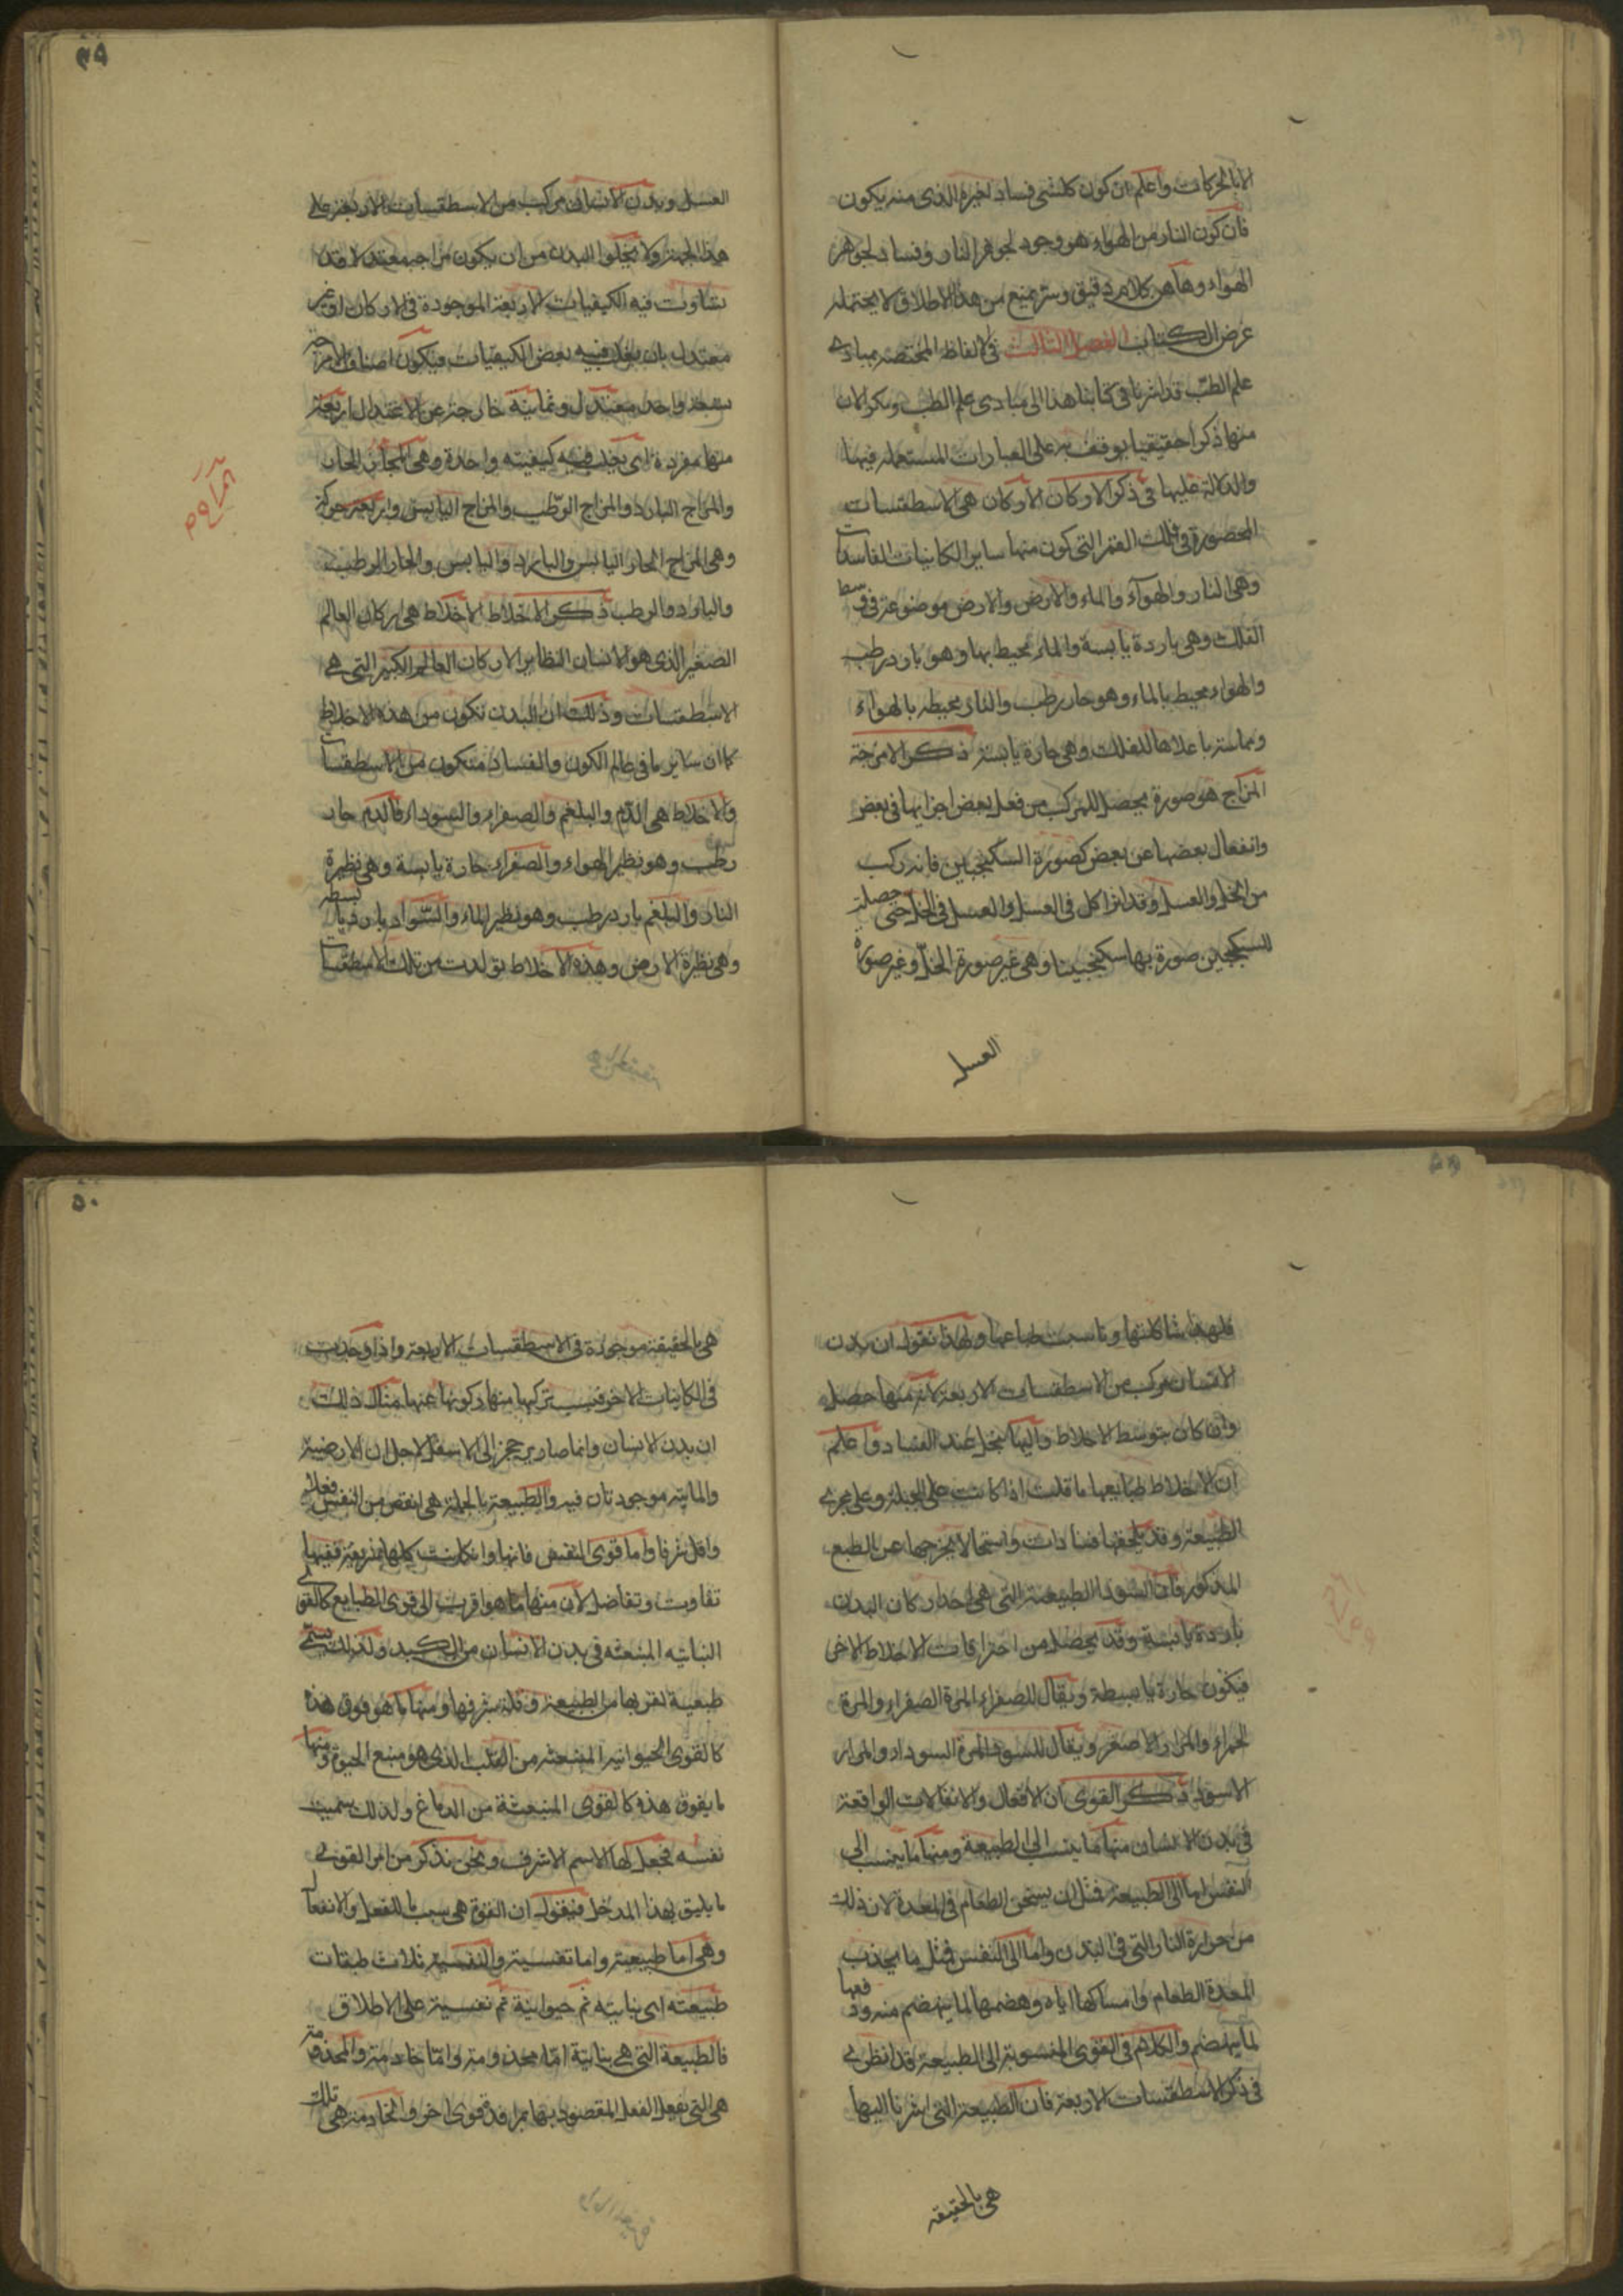 الا بالحركات واعلم ان كون كل شئ فساد لغيره الذى منه يكون
فان كون النار من الهواء هو وجود لجوهر النار وفساد لجوهر
الهواء وهاهن كلام دقيق وستر يمنع من هذا الاطلاق لا يحتمله
غرض الكتاب الفصل الثالث فى الالفاظ المختصه بمبادى
علم الطب قد اشرنا فى كتابنا هذا الى مبادى علم الطب ونذكر الان
منها ذكرا حقيقيا يوقف به على العبارات المستعمله فيها
والدلالة عليها فى ذكر الاركان الاركان هى الاسطقسات
المحصورة فى فلك القمر التى كون منها ساير الكاينات الفاسدات
وهى النار والهوآء والماء والارض والارض موضوعة فى وسط
الفلك وهى باردة يابسة والماء محيط بها وهو بارد رطب
والهواء محيط بالماء وهو حار رطب والنار محيطه بالهواء
ومماسة باعلاها للفلك وهى حارة يابسة ذكر الامزجة
المزاج هو صورة يحصل للمركب من فعل بعض اجزايها فى بعض
وانفعال بعضها عن بعض كصورة السكنجبين فانه ركب
من الخل والعسل وقد اثر اكل فى العسل والعسل فى الخل حتى حصلت
للسكنجبين صورة بها سكنجبينا وهى غير صورة الخل وغير صورة
العسل
٤٩
العسل وبدن الانسان مركب من الاسطقسات الاربعة على
هذا الجهة ولا يخلوا البدن من ان يكون مزاجه معتدلا قد
تساوت فيه الكيفيات الاربعة الموجودة فى الاركان او غير
معتدل بان يغلب فيه بعض الكيفيات فيكون اصناف الامزجة
تسعة واحد معتدل وثمانية خارجة عن الاعتدال اربعة
منها مفردة اى يغلب فيه كيفيته واحدة وهى المزاج الحار
والمزاج البارد والمزاج الرطب والمزاج اليابس واربعة مركبة
وهى المزاج الحار اليابس والبارد واليابس والحار الرطب
والبارد والرطب ذكر الاخلاط الاخلاط هى اركان العالم
الصغير الذى هو الانسان النظاير الاركان العالم الكبير التى هى
الاسطقسات وذلك ان البدن تكون من هذه الاخلاط
كما ان ساير ما فى عالم الكون والفساد متكون من الاسطقسات
والاخلاط هى الدم والبلغم والصفراء والسوداء فالدم حار
رطب وهو نظير الهواء والصفراء حارة يابسة وهى نظيرة
النار والبلغم بارد رطب وهو نظير الماء والسواد باردة يابسة
وهى نظيرة الارض وهذه الاخلاط تولدت من تلك الاسطقسات
فلهذا شاكلتها وناسبت طباعها ولهذا نقول ان بدن
الانسان مركب من الاسطقسات الاربعة لانه منها حصل
وان كان بتوسط الاخلاط واليها ينحل عند الفساد واعلم
ان الاخلاط طبايعها ما قلت اذا كانت على الجبلة وعلى مجرى
الطبيعة وقد يلحقها فسادات واستحالا يخرجها عن الطبع
المذكور فان السودا الطبيعية التى هى احد اركان البدن
باردة يابسة وقد يحصل من احتراقات الاخلاط الاخر
فيكون حارة يابسطة ويقال للصفراء المرة الصفراء والمرة
الحمراء والمرار الاصفر ويقال للسودا المرة السوداء والمرار
الاسود ذكر القوى ان الافعال والانفعالات الواقعة
فى بدن الانسان منها ما ينسب الى الطبيعة ومنها ما ينسب الى
النفس اما الى الطبيعة فمثل ان يسخن الطعام فى المعدة لان ذلك
من حرارة النار التى فى البدن واما الى النفس فمثل ما يجذب
المعدة الطعام وامساكها اياه وهضمها لما ينهضم منه ودفعها
لما ينهضم والكلام فى القوى المنسوبة الى الطبيعة قد انطوى
فى ذكر الاسطقسات الاربعة فان الطبيعة التى اشرنا اليها
هى بالحقيقه
٥٠
هى بالحقيقة موجودة فى الاسطقسات الاربعة واذا وجدت
فى الكاينات الاخر فبسبب تركبها منها وكونها عنها مثال ذلك
ان بدن الانسان وانما صار يرجحن الى الاسفل لاجل ان الارضية
والماييه موجودتان فيه والطبيعة بالجملة هى انقص من النفس فعلا
واقل شرفا واما قوى النفس فانها وان كانت كلها شريفة ففيها
تفاوت وتفاضل لان منها ما هو اقرب الى قوى الطبايع كالقوى
النباتيه المنبعثه فى بدن الانسان من الكبد ولذلك يسمى
طبيعية لقربها من الطبيعة وقلة شرفها ومنها ما هو فوق هذه
كالقوى الحيوانيه المنبعثه من القلب الذى هو منبع الحيوة ومنها
ما يفوق هذه كالقوى المنبعثة من الدماغ ولذلك سميت
نفسه فجعل لها الاسم الاشرف ونحن نذكر من امر القوى
ما يليق بهذا المدخل فنقول ان القوة هى سبب ما للفعل والانفعال
وهى اما طبيعية واما نفسية والنفسية ثلاث طبقات
طبيعته اى نباتيه ثم حيوانية ثم نفسية على الاطلاق
فالطبيعة التى هى نباتية امّا مخدومة وامّا خادمة والمخدومة
هى التى يفعل الفعل المقصود بها مرافدة قوى اخر والخادمة هى تلك